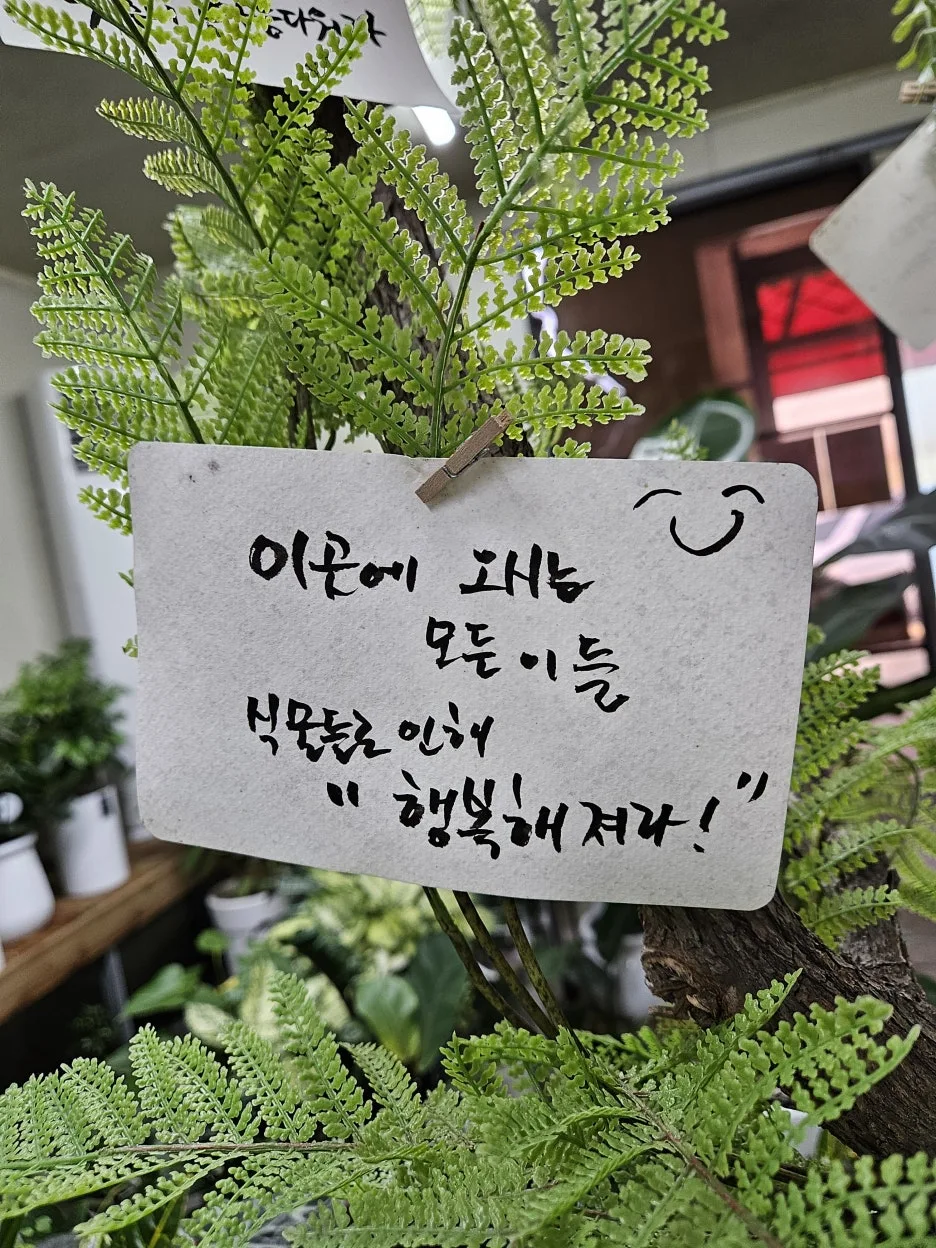 이곳에 오시는
모든 이들
식물들로 인해
"행복해져라!"